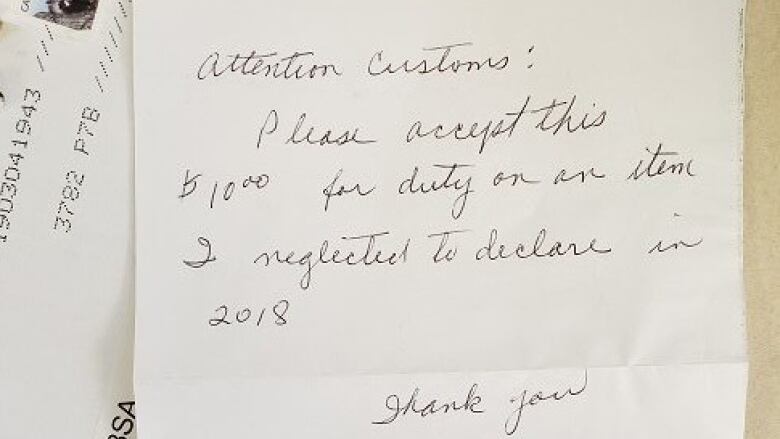 Attention Customs:
Please accept this
$10⁰⁰ for duty on an item
I neglected to declare in
2018
Thank you
1903041943
3782 P7B
BSA